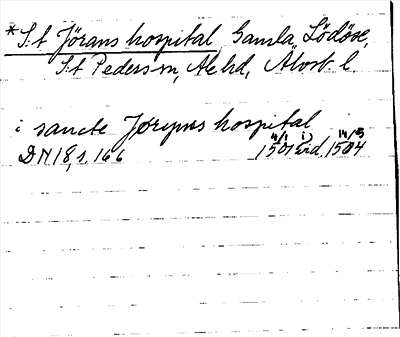 *S:t Jörans hospital, Gamla Lödöse,
S:t Peders sn, Ale hd, Älvsb. l.
i sancte Jørgens hospital
4/1 i) 14/5
DN 18, 1, 166 1501 1504